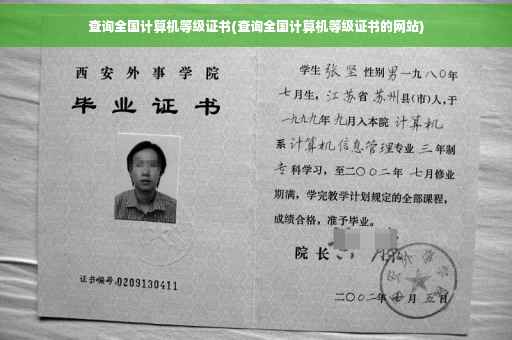 查询全国计算机等级证书(查询全国计算机等级证书的网站)
西安外事学院
毕业证书
证书编号:0209130411
学生 张坚 性别男一九八〇年
七月生,江苏省苏州县(市)人,于
一九九九年九月入本院 计算机
系 计算机信息管理专业 三年制
专科学习,至二〇〇二年七月修业
期满,学完教学计划规定的全部课程,
成绩合格,准予毕业。
院长
二〇〇二年 月五日